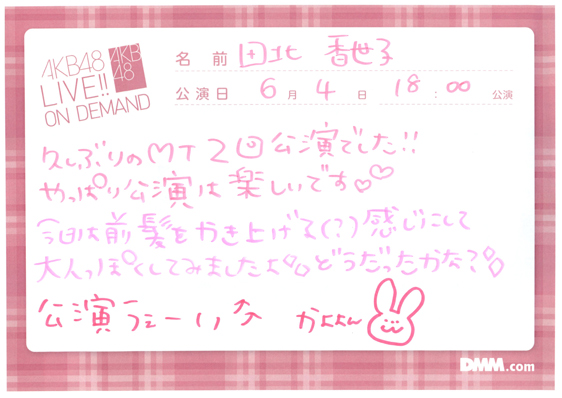 AKB48
LIVE!!
ON DEMAND
AKB
48
名 前 田北 香世子
公演日 6月 4日 18:00 公演
久しぶりのMT2回公演でした!!
やっぱり公演は楽しいです♡♡
今日は前髪をかき上げて(?)感じにして
大人っぽくしてみましたよ どうだったかな?
公演うぇーい♪ かよよん
DMM.com